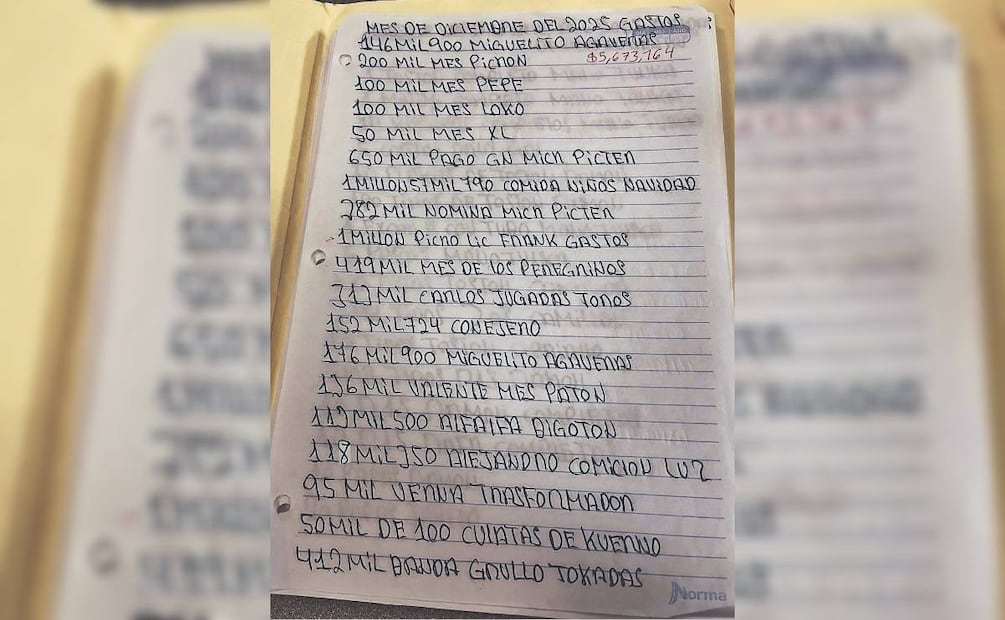 MES DE DICIEMBRE DEL 2025 GASTOS
146 MIL 900 MIGUELITO AGAVERAS
$5,673,764
200 MIL MES PICHON
100 MIL MES PEPE
100 MIL MES LOKO
50 MIL MES XL
650 MIL PAGO GN MICH PICTER
1 MILLON 57 MIL 790 COMIDA NIÑOS NAVIDAD
282 MIL NOMINA MICH PICTER
1 MILLON PICHO LIC FRANK GASTOS
419 MIL MES DE LOS PEREGRINOS
313 MIL CARLOS JUGADAS TOROS
152 MIL 724 CONEJERO
176 MIL 900 MIGUELITO AGAVERAS
136 MIL VALENTE MES PATON
113 MIL 500 ALFALFA BIGOTON
118 MIL 350 ALEJANDRO COMICION LUZ
95 MIL VERUA TRASFORMADOR
50 MIL DE 100 CULATAS DE KUERNO
412 MIL BANDA GRULLO TOKADAS
Norma